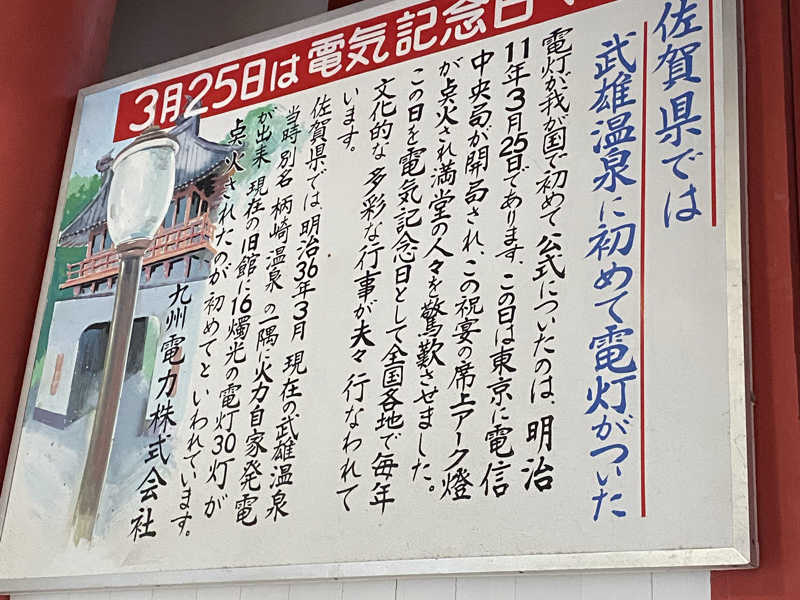 3月25日は電気記念日
佐賀県では
武雄温泉に初めて電灯がついた
電灯が我が国で初めて公式についたのは、明治
11年3月25日であります。この日は東京に電信
中央局が開局され、この祝宴の席上アーク燈
が点火され満堂の人々を驚歎させました。
この日を電気記念日として全国各地で毎年
文化的な多彩な行事が夫々行なわれて
います。
佐賀県では明治36年3月現在の武雄温泉
当時別名柄崎温泉の一隅に火力自家発電
が出来現在の旧館に16燭光の電灯30灯が
点火されたのが初めてといわれています。
九州電力株式会社